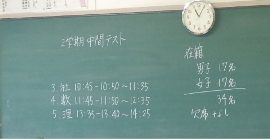 2学期中間テスト
3. 社 10:45-10:50~11:35
4. 数 11:45-11:50~12:35
5. 理 13:35-13:40~14:25
在籍
男子 17名
女子 17名
34名
欠席 なし